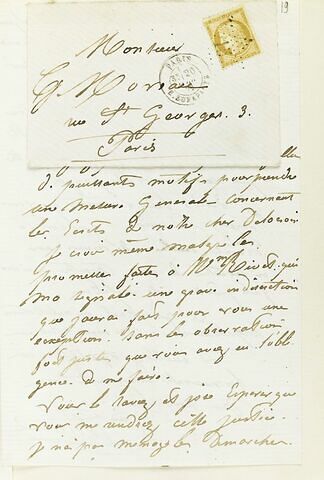 19
Monsieur
G. Moreau
rue St Georges. 3.
Paris
PARIS
de puissants motifs pour prendre
une mesure Generale concernant
les Ecrits de notre cher Delacroix
Je crois même malgré la
promesse faite à Mme Rivet qui
une grave indiscretion
que j'aurai fait pour vous une
exception. Sans les observations
fort justes que vous avez eu l'obli
gence de me faire.
Vous le savez et j'ose Esperer que
vous me rendrez cette justice
je n'ai pas menagé les Demarches